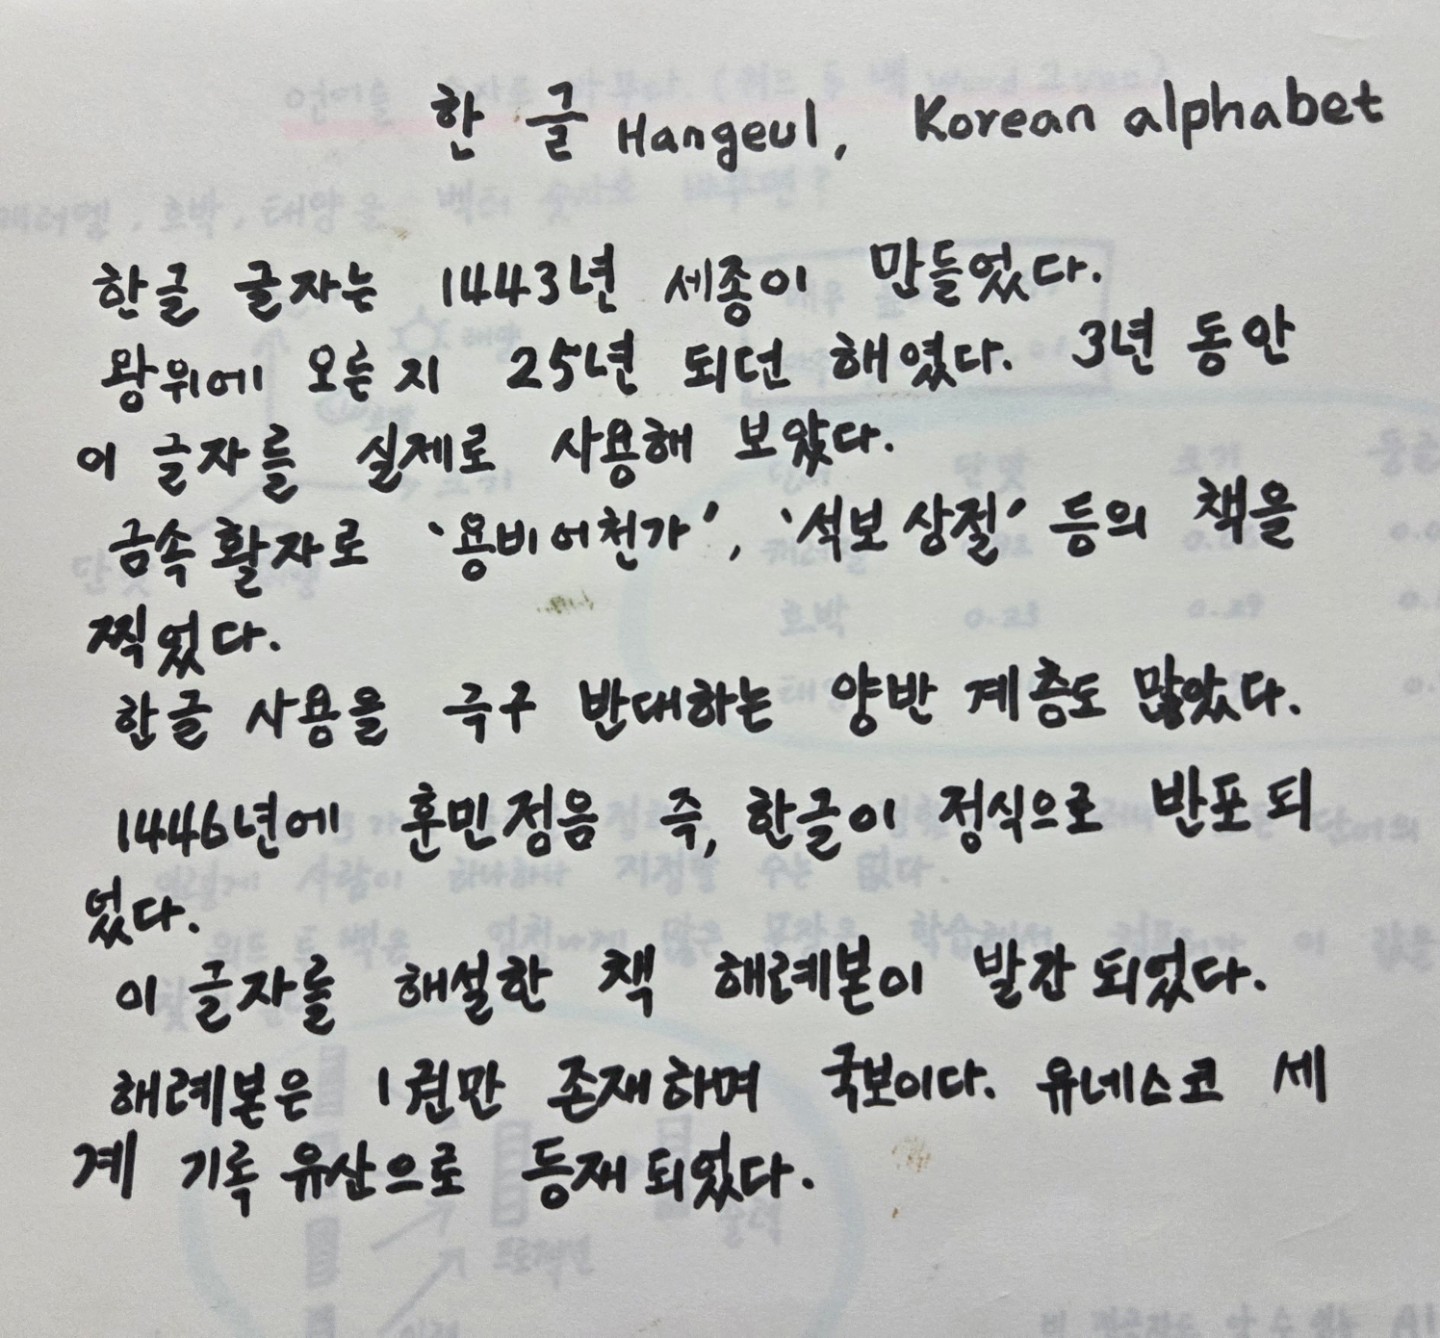 한글 Hangeul, Korean alphabet
한글 글자는 1443년 세종이 만들었다.
왕위에 오른지 25년 되던 해였다. 3년 동안
이 글자를 실제로 사용해 보았다.
금속활자로 '용비어천가', '석보상절' 등의 책을
찍었다.
한글 사용을 극구 반대하는 양반 계층도 많았다.
1446년에 훈민정음 즉, 한글이 정식으로 반포되
었다.
이 글자를 해설한 책 해례본이 발간되었다.
해례본은 1권만 존재하며 국보이다. 유네스코 세
계 기록유산으로 등재되었다.